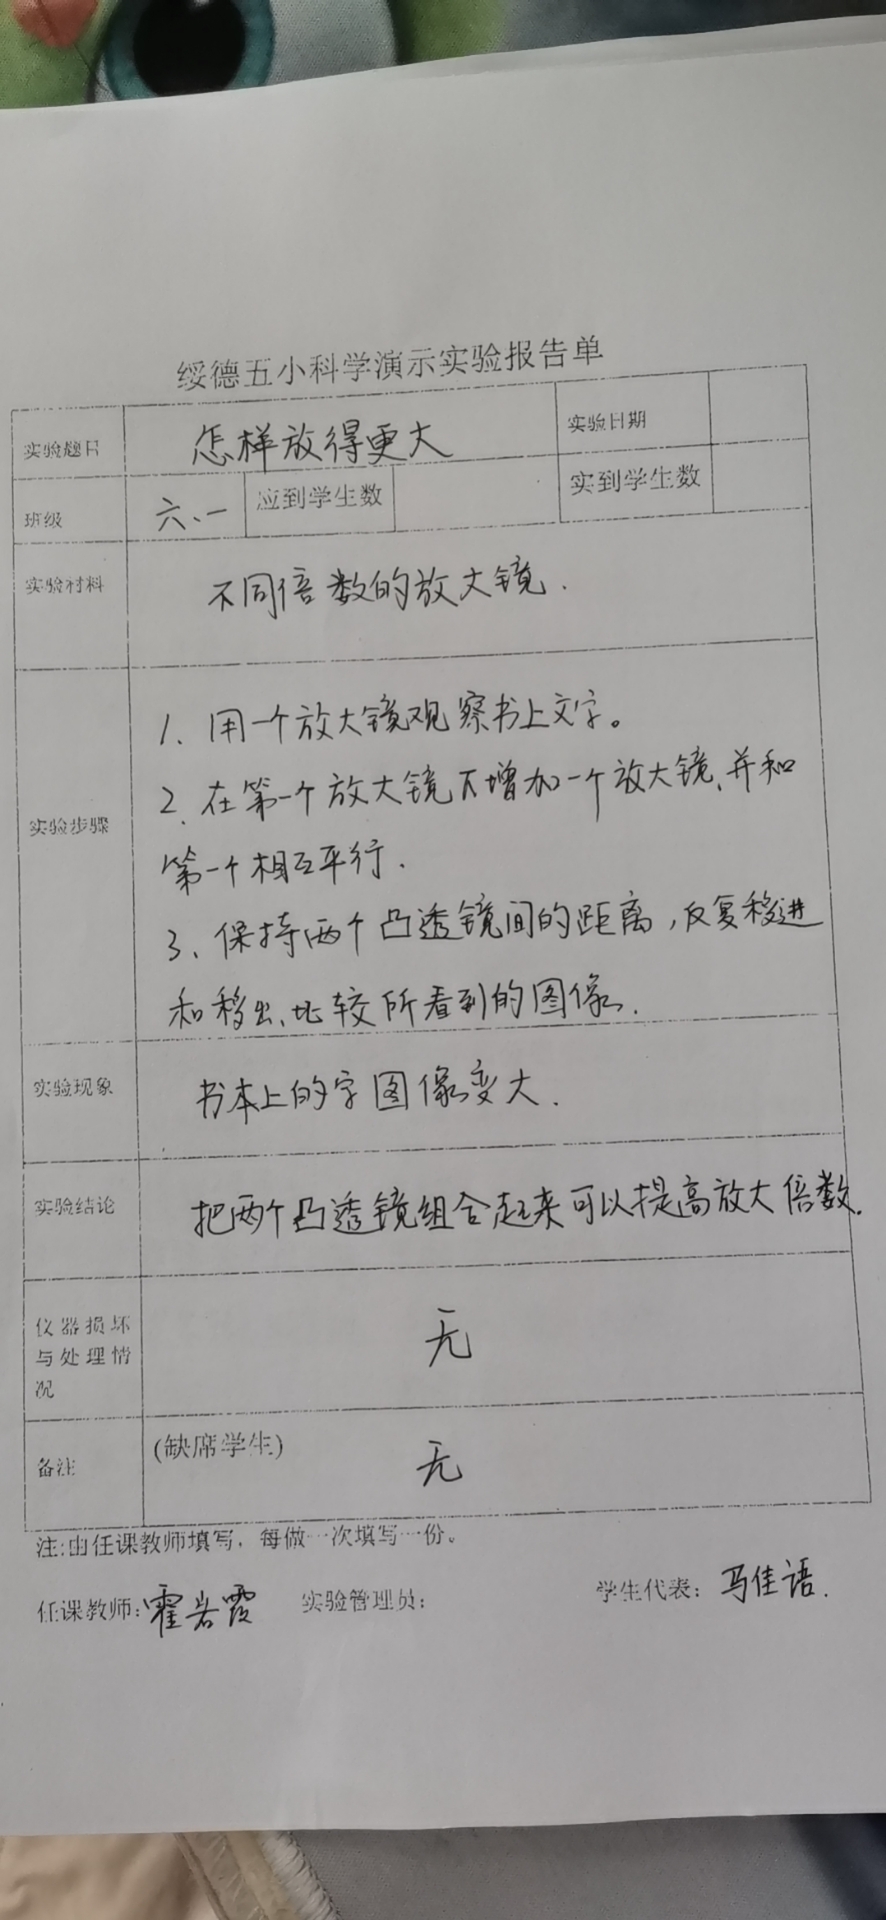 绥德五小科学演示实验报告单
实验题目 怎样放得更大 实验日期
班级 六、一 应到学生数 实到学生数
实验材料 不同倍数的放大镜.
实验步骤
1、用一个放大镜观察书上文字。
2、在第一个放大镜下增加一个放大镜、并和
第一个相互平行.
3、保持两个凸透镜间的距离,反复移进
和移出、比较所看到的图像.
实验现象 书本上的字图像变大.
实验结论 把两个凸透镜组合起来可以提高放大倍数.
仪器损坏
与处理情
况
无
备注 (缺席学生) 无
注:由任课教师填写,每做一次填写一份。
任课教师:霍岩霞 实验管理员: 学生代表:马佳语.